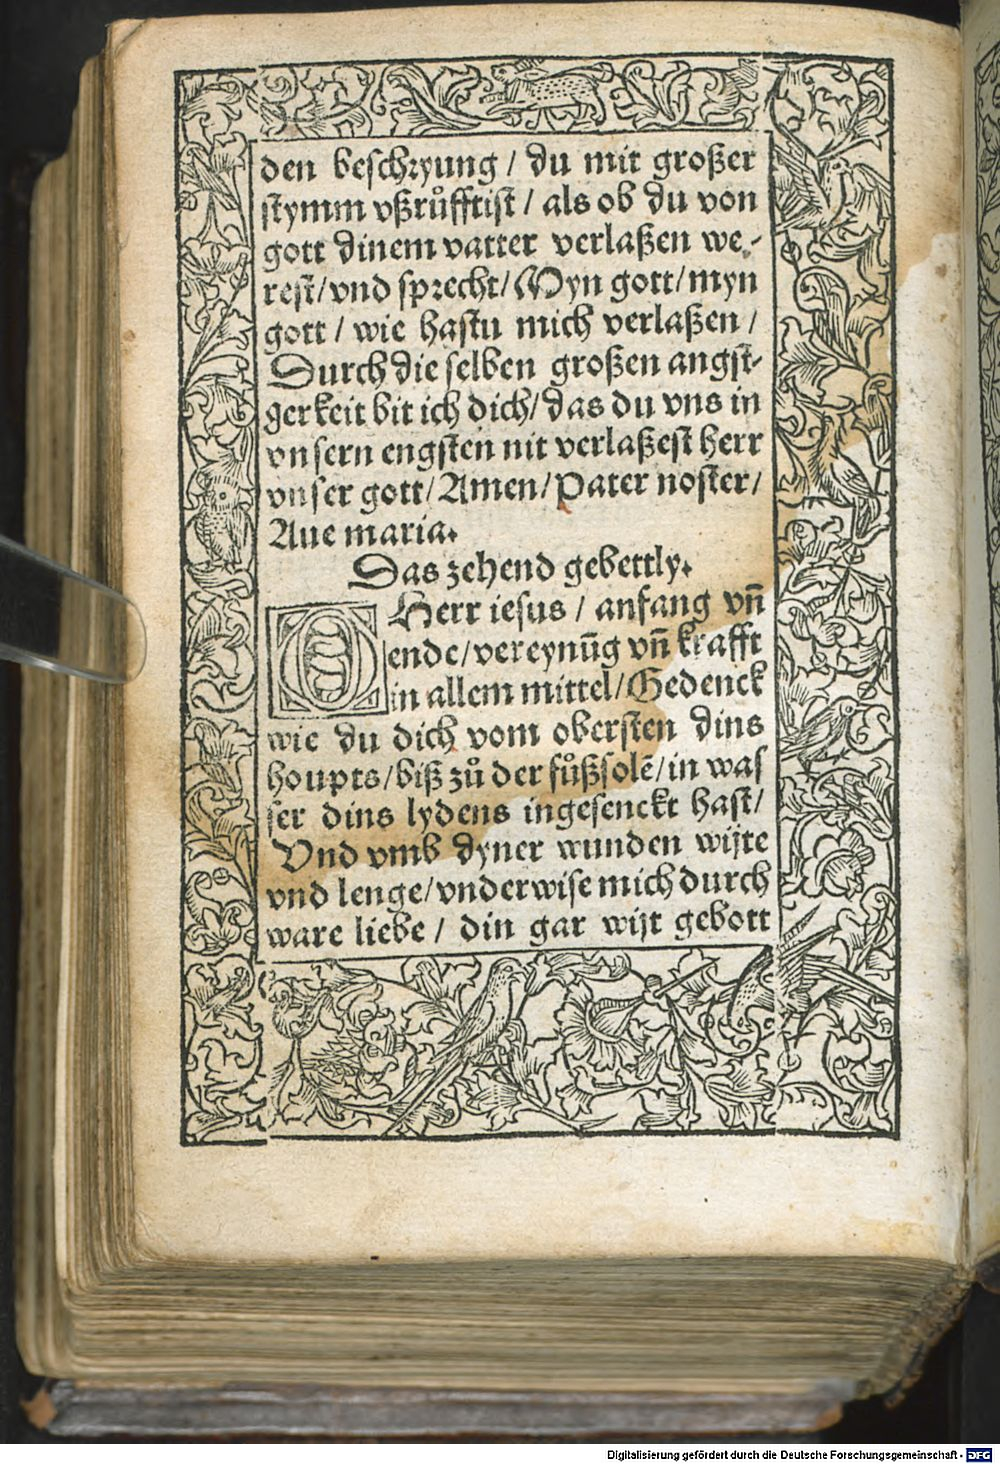 den beschryung / du mit großer
stymm vßrůfftist / als ob du von
gott dinem vatter verlaßen we-
rest / vnd sprecht / Myn gott / myn
gott / wie hastu mich verlaßen /
Durch die selben großen angst-
gerkeit bit ich dich / das du vns in
vnsern engsten nit verlaßest herr
vnser gott / Amen / Pater noster /
Aue maria.
Das zehend gebettly.
O Herr iesus / anfang vn̄
ende / vereynūg vn̄ krafft
in allem mittel / Gedenck
wie du dich vom obersten dins
houpts / biß zů der fůßsolē / in was
ser dins lydens ingesenckt hast /
Vnd vmb dyner wunden wijte
vnd lenge / vnderwise mich durch
ware liebe / din gar wijt gebott
Digitalisierung gefördert durch die Deutsche Forschungsgemeinschaft - DFG